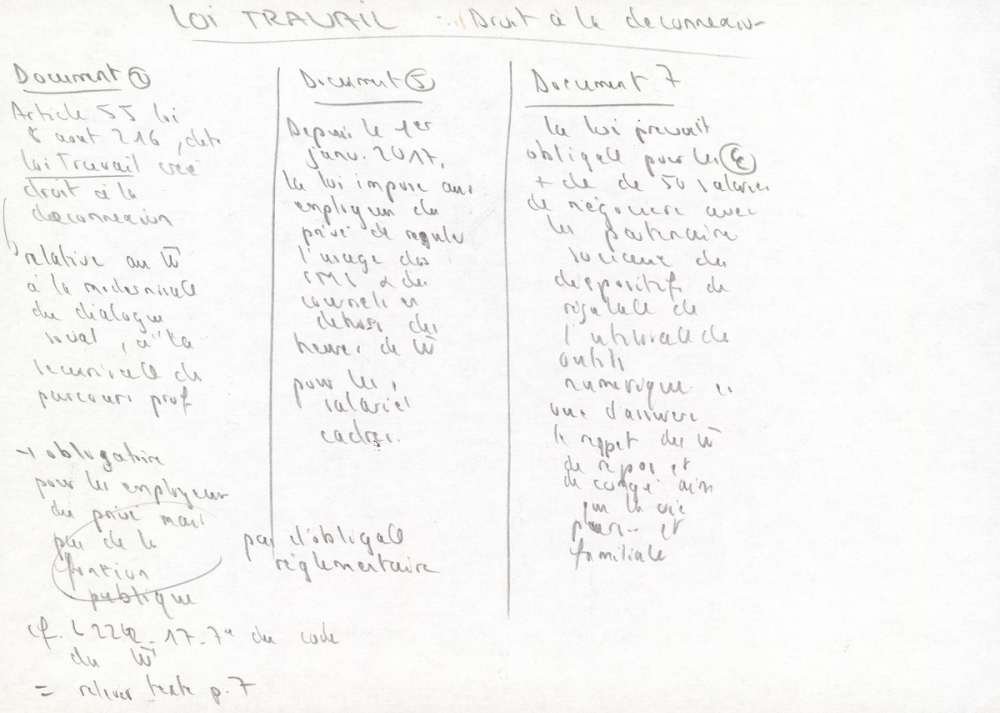 LOI TRAVAIL : Droit à la deconnexion
Document ①
Article 55 loi
8 aout 216, dite
loi Travail crée
droit à la
deconnexion
relative au W
à la modernisat°
du dialogue
social, à la
securisat° du
parcours prof
→ obligatoire
pour les employeur
du privé mais
pas de la
fonction
publique
cf. L 2242-17-7° du code
du W
= relever texte p. 7
Document ⑤
Depuis le 1er
janv. 2017,
la loi impose aux
employeurs du
privé de réguler
l'usage des
SMS & des
courriels en
dehors des
heures de W
pour les
salariés
cadres.
pas d'obligat°
règlementaire
Document 7
la loi prevoit
obligat° pour les Є
+ de 50 salariés
de négocier avec
les partenaire
sociaux des
dispositifs de
régulat° de
l'utilisat° de
outils
numérique en
vue d'assurer
le respet du W
de repos et
de congé ainsi
que la vie
pers- et
familiale